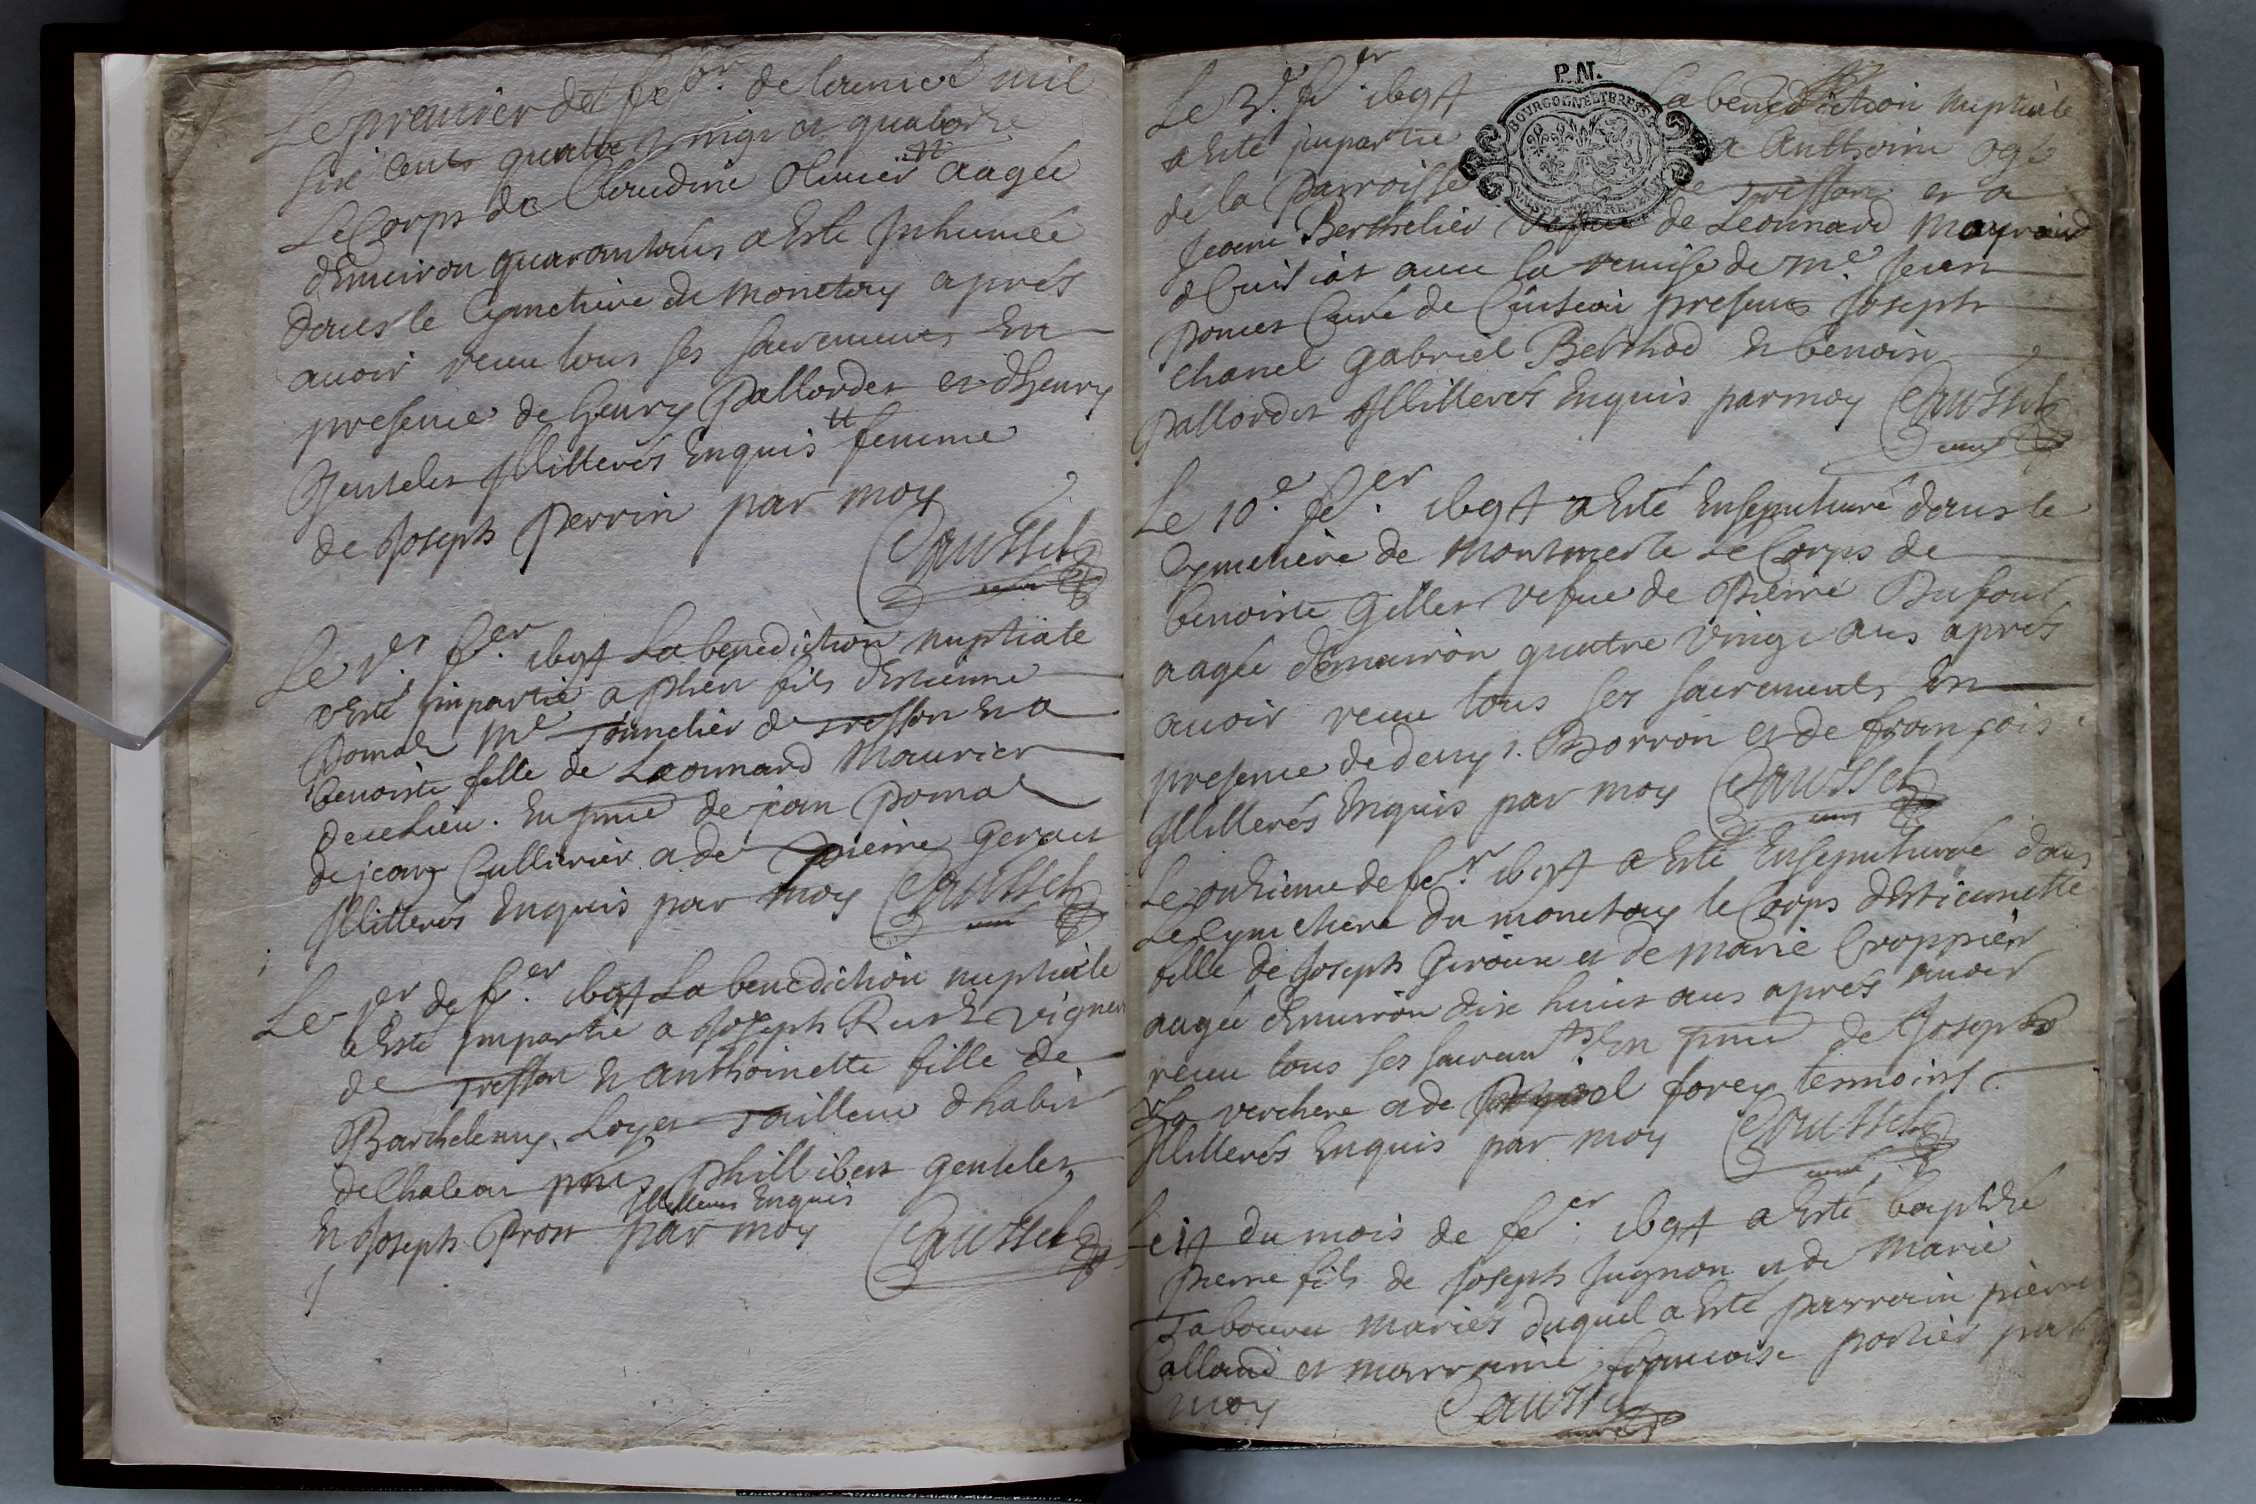 Le premier de febvr. de lannee mil
six cents quatre vingt et quatorze
Le Corps de Claudine Olivier tt aagée
denviron quarantans a Esté Inhumée
dans le Cymetiere de Monetay aprés
avoir receu tous ses sacrements En
presence de henry Pallordet et dhenry
Gentelet Illitterés Enquis tt femme
de Joseph Perrin par moy
Caussel
curé
Le 1er. fer. 1694 La benediction nuptiale
a Esté impartie a phên fils destienne
Pomat Me Tounelier de Tresson Et a
benoiste fille de Leonnard Maurier
de ce Lieu. En pnce de jean Pomat
de jean Cullierier et de pierre Geraut
Illitterés Enquis par moy Caussel
curé
Le 1er de fer. 1694 La benediction nuptiale
a Esté Impartie a Joseph vigneron
de Tresson Et Anthoinette fille de
Barthelemy Loyet Tailleur dhabit
de Chaleat pnts Phillibert Gentelet
Illitteres Enquis
Et Joseph Prost par moy Caussel
Le 3e. fer. 1694 La benediction nuptiale
a Esté impartie a Anthoine
de la Parroisse de Tresson et a
Jeanne Berthelier vefue de Leonnard
de Cuisiat avec la remise de Me. Jean
Poncet Curé de Cuiseau presents Joseph
Chanel Gabriel Berthod Et benoist
Pallordet Illitterés Enquis par moy Caussel
curé
Le 10e. fer. 1694 a Esté Ensepulturé dans le
Cymetiere de Montmerle Le Corps de
benoiste Gillet vefue de Pierre Dufour
aagée denviron quatre vingt ans aprés
avoir receu tous ses sacrements En
presence de denys. Borron et de françois
Illitterés Enquis par moy Caussel
curé
Le onzieme de fer. 1694 a Esté Ensepulturée dans
Le Cymetiere du monetay le Corps destiennette
fille de Joseph Giroux et de Marie Croppier
aagée denviron dix huict ans aprés avoir
receu tous ses sacremts. En pnce de Joseph
La verchere et de forey tesmoins
Illitterés Enquis par moy Caussel
curé
Le 14 du mois de fer. 1694 a Esté baptizé
pierre fils de Joseph Jugnon et de Marie
Taboura mariés duquel a Esté parrain pierre
Calland et marrainne francoise portier par
moy Caussel
curé
P.N.
BOURGOGNE ET BRESSE